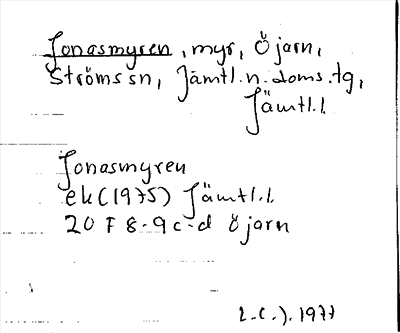 Jonasmyren, myr, Öjarn,
Ströms sn, Jämtl.n.doms.tg,
Jämtl.l.
Jonasmyren
ek(1975) Jämtl.l.
20 F 8-9 c-d Öjarn
1977